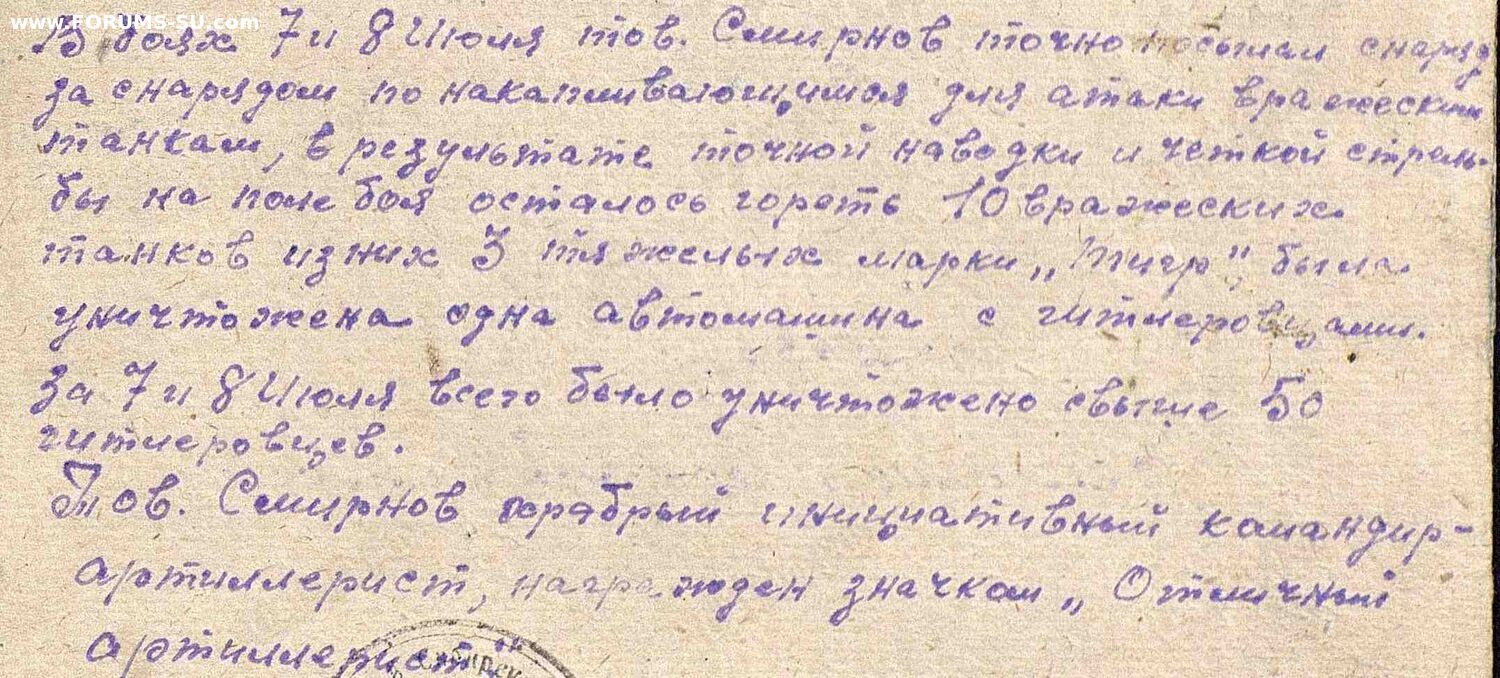 www.FORUMS-SU.com
В боях 7 и 8 Июля тов. Смирнов точно посылал снаряд
за снарядом по накапливающимся для атаки вражеским
танкам, в результате точной наводки и четкой стрель-
бы на поле боя осталось гореть 10 вражеских
танков из них 3 тяжелых марки „Тигр", была
уничтожена одна автомашина с гитлеровцами.
За 7 и 8 Июля всего было уничтожено свыше 50
гитлеровцев.
Тов. Смирнов храбрый инициативный командир-
артиллерист, награжден значком „Отличный
артиллерист".